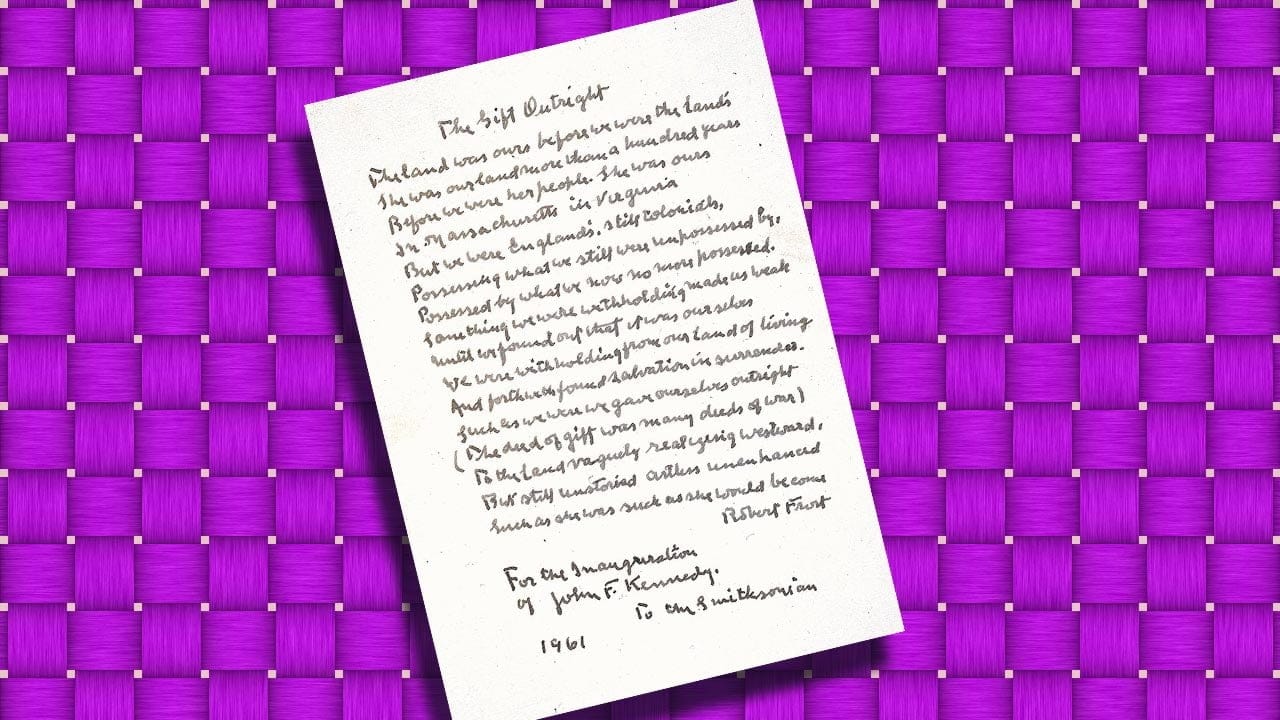 The Gift Outright
The land was ours before we were the lands
She was our land more than a hundred years
Before we were her people. She was ours
In Massachusetts in Virginia
But we were Englands, still colonials,
Possessing what we still were unpossessed by,
Possessed by what we now no more possessed.
Something we were withholding made us weak
Until we found out that it was ourselves
We were withholding from our land of living
And forthwith found salvation in surrender.
Such as we were we gave ourselves outright
(The deed of gift was many deeds of war)
To the land vaguely realizing westward,
But still unstoried artless unenhanced
Such as she was such as she would become
Robert Frost
For the Inauguration
of John F. Kennedy.
To the Smithsonian
1961